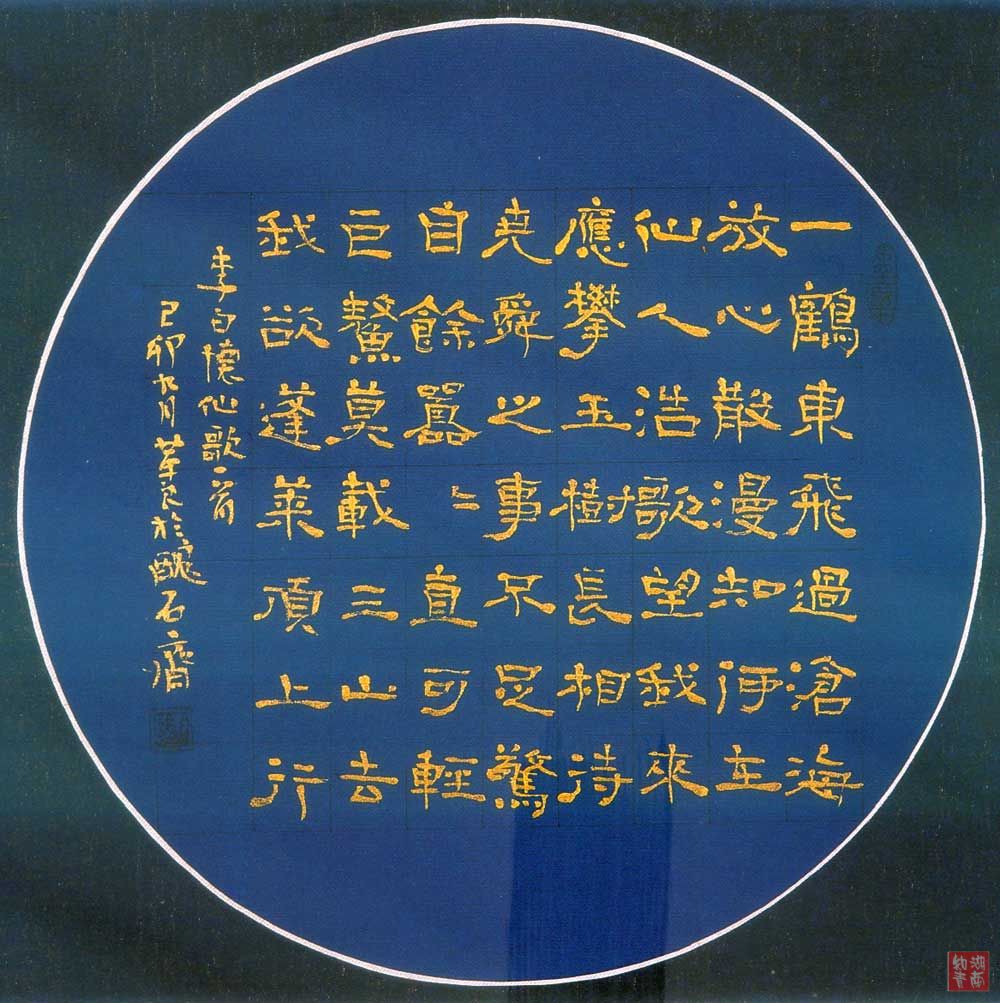 一鶴東飛過滄海
放心散漫知何在
仙人浩歌望我來
應攀玉樹長相待
堯舜之事不足驚
自餘囂〻直可輕
巨鰲莫載三山去
我欲蓬萊頂上行
李白懷仙歌一首
己卯九月於醜石齋
湖南